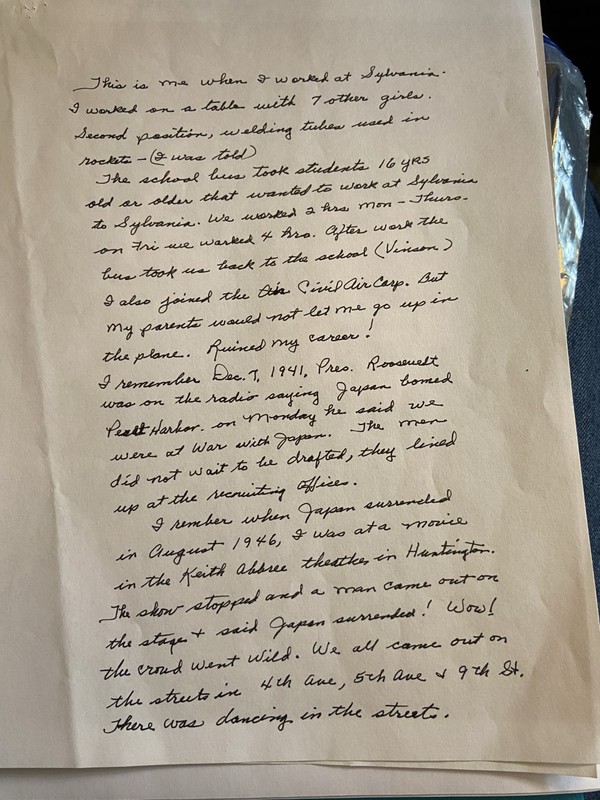 This is me when I worked at Sylvania.
I worked on a table with 7 other girls.
Second position, welding tubes used in
rockets - (I was told)
The school bus took students 16 yrs
old or older that wanted to work at Sylvania
to Sylvania. We worked 2 hrs Mon - Thurs.
on Fri we worked 4 hrs. After work the
bus took us back to the school (Vinson)
I also joined the Civil Air Corp. But
my parents would not let me go up in
the plane. Ruined my career!
I remember Dec. 7, 1941, Pres. Roosevelt
was on the radio saying Japan bomed
Pearl Harbor. on Monday he said we
were at War with Japan. The men
did not wait to be drafted, they lined
up at the recruiting offices.
I rember when Japan surrended
in August 1946, I was at a movie
in the Keith Albree theather in Huntington.
The show stopped and a man came out on
the stage + said Japan surrended! Wow!
the crowd went wild. We all came out on
the streets in 4th Ave, 5th Ave & 9th St.
There was dancing in the streets.